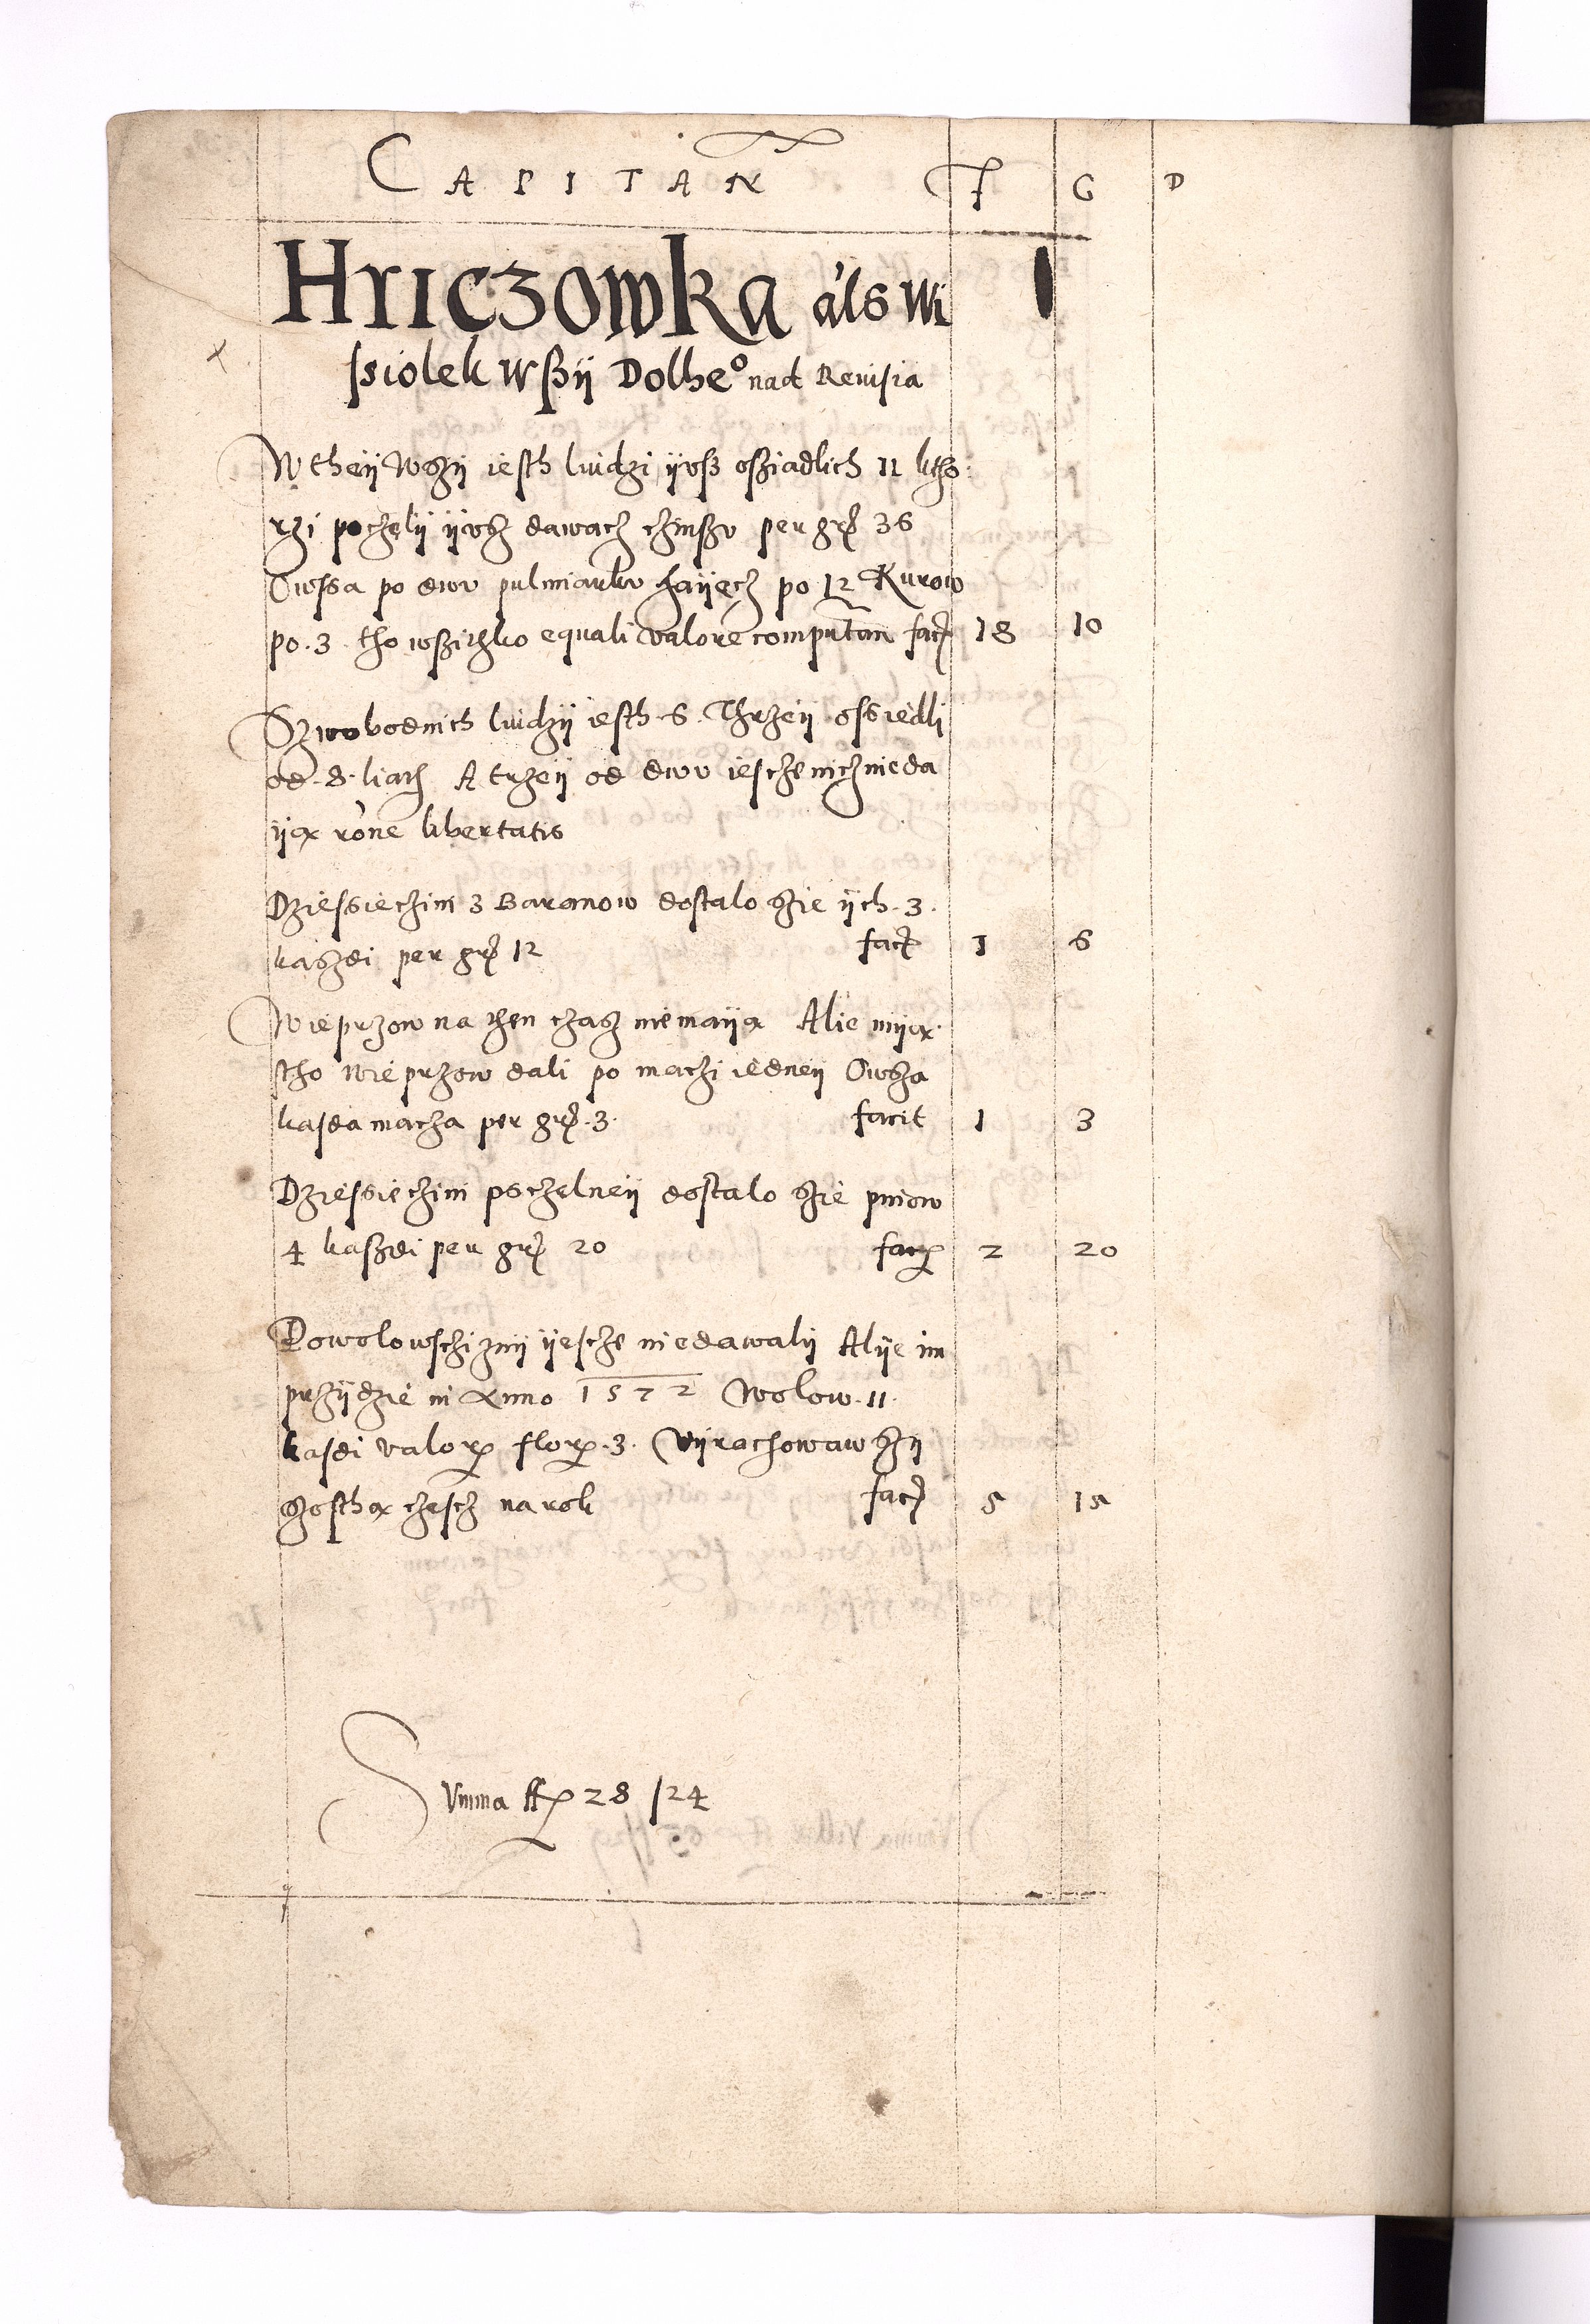 CAPITAN F G D
Hriczowka als Wi
ssiolek Wssÿ Dolhe° nad Reuisia
W theÿ Wszÿ iesth luidzi ÿvsz osziadlich 11 ktho
rzi poczelÿ ÿvsz dawacz czinszv per grs 36
Owssa po dwv pulmiarkv Jaÿecz po 12 Kurow
po .3. tho wszithko equali valore computan facit 18 10
Szwobodnich luidzÿ iesth .6. Thrzeÿ ossiedli
od .8. liath A trzeÿ od dwv iescze nicz nieda
ÿa rone libertatis
Dziessieczini z Baranow dostalo szie ÿch .3.
kaszdi per grs 12 facit 1 6
Wieprzow na then czasz niemaÿa Alie miÿa
stho wieprzow dali po maczi iedneÿ Owsza
kasda macza per grs .3. facit 1 3
Dziessieczini psczelneÿ dostalo szie pniow
4 kaszdi per grs 20 facit 2 20
Powolowschiznÿ ÿescze niedawalÿ Alÿe im
przÿdzie in Anno 1572 Wolow .11.
kasdi valor flor .3. Vÿrachowawszÿ
szostha czescz na rok facit 5 15
Summa ff 28 /24